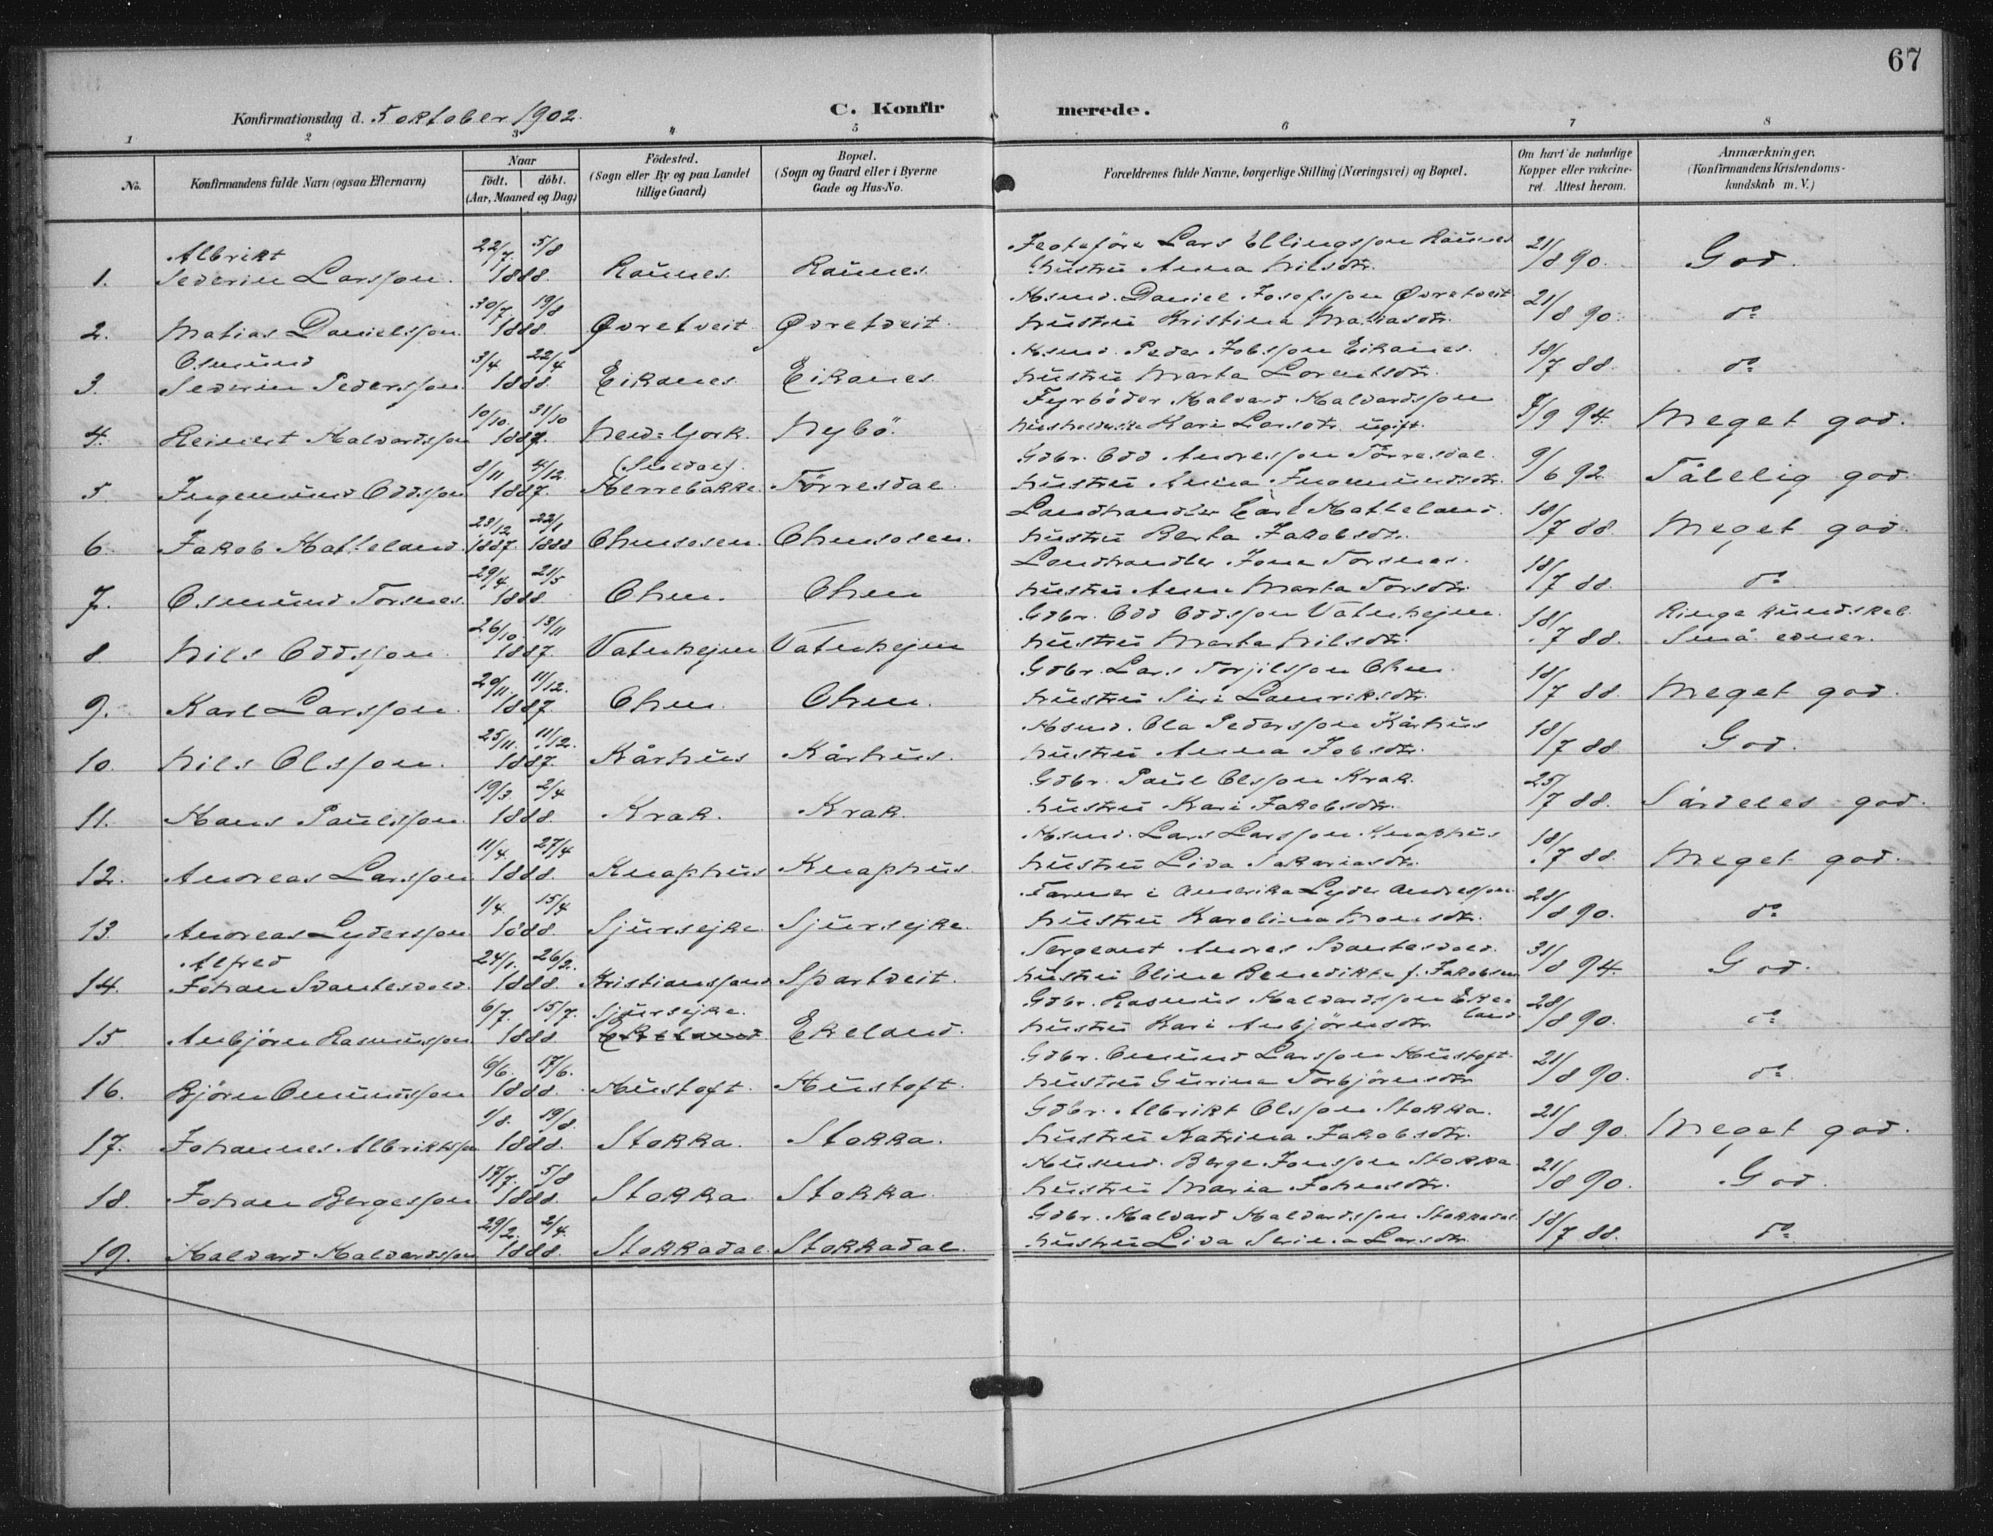 67
C. Konfirmerede.
Konfirmationsdag d. 5 oktober 1902.
1 2 3 4 5 6 7 8
No. Konfirmandens fulde Navn (ogsaa Efternavn) Naar født. døbt. (Aar, Maaned og Dag) Fødested. (Sogn eller By og paa Landet tillige Gaard) Bopæl. (Sogn og Gaard eller i Byerne Gade og Hus-No. Forældrenes fulde Navne, borgerlige Stilling (Næringsvei) og Bopæl. Om havt de naturlige Kopper eller vakcineret. Attest herom. Anmærkninger, (Konfirmandens Kristendomskundskab m. V.)
1. Albrikt Severin Larsson. 22/7 1888. 5/8 Raunes. Raunes. Lars Ellingsson Raunes hustru Anna Nilsdtr. 21/8 90. God.
2. Matias Danielsson 30/7 1888. 19/8 Øvretveit Øvretveit. Hsmd. Daniel Josefsson Øvretveit hustru Kristina Matiasdtr. 21/8 90. do
3. Osmund Severin Pedersson 3/4 1888. 22/4 Eikanes Eikanes Hsmd. Peder Jobsson Eikanes. hustru Marta Lorentsdtr. 18/7 88. do
4. Reinert Halvardsson 10/10 1887. 31/10 New-York. Nybö. Fyrböder Halvard Halvardsson Kari Larsdtr. ugift. 7/9 94. Meget god.
5 Ingemund Oddsson 8/11 1887. 4/12 (Suldal). Herrebakke. Törresdal Gdbr. Odd Andresson Törresdal hustru Anna Ingemundsdtr. 9/6 92. Tålelig god
6 Jakob Hatteland. 23/12 1887. 22/1 1888 Ølmsosen. Ølmsosen. Landhandler Karl Hatteland. hustru Berta Jakobsdtr. 18/7 88. Meget god
7. Osmund Torsnes. 29/4 1888. 21/5 Ølen. Ølen Landhandler Jone Torsnes. hustru Anne Marta Torsdtr. 18/7 88. do
8 Nils Oddsson. 26/10. 1887. 13/11 Vatnhejm Vatnhejm Gdbr. Odd Oddsson Vatnhejm. hustru Marta Nilsdtr. 18/7 88. Ringe kundskab. Små evner.
9. Karl Larsson. 20/11. 1887. 11/12. Ølen. Ølen. Gdbr. Lars Torjilsson Ølen hustru Siri Lauriksdtr. 18/7 88. Meget god.
10. Nils Olsson. 25/11. 1887. 11/12. Kårhus Kårhus. Hsmd. Ola Pedersson Kårhus hustru Anna Jobsdtr. 18/7 88. God.
11. Hans Paulsson. 19/3. 1888. 2/4 Krak. Krak. Gdbr. Paul Olsson Krak. hustru Kari Jakobsdtr. 25/7 88. Særdeles god.
12. Andreas Larsson 11/4. 1888. 27/4 Knaphus Knaphus. Hsmd. Lars Larsson Knaphus hustru Liva Sakariasdtr. 18/7 88. Meget god.
13. Andreas Lydersson 1/4. 1888. 15/4 Sjursejke. Sjursejke. Farmer i Amerika Lyder Andresson hustru Karolina Monsdtr. 28/8 90. do
14. Alfred Johan Svantesvold. 24/1. 1888. 26/2. Kristianssand Spartveit. Sergeant Andres Svantesvold. hustru Oline Benedikte f. Jakobsen 31/8 94. God.
15 Anbjörn Rasmusson. 6/7. 1888. 15/7. Sjursejke. Ekeland. Ekeland. Gdbr. Rasmus Halvardsson Ekeland hustru Kari Anbjörnsdtr 28/8 90. do
16. Björn Omundsson 6/6. 1888. 17/6. Hustoft. Hustoft. Gdbr. Omund Larsson Hustoft. hustru Gurina Torbjörnsdtr 21/8 90. do
17. Johannes Albriktsson 1/8. 1888. 19/8. Stokka. Stokka. Gdbr. Albrikt Olsson Stokka. hustru Katrina Jakobsdtr. 21/8 90. Meget god.
18. Johan Bergesson 17/7. 1888. 5/8 Stokka Stokka. Husmd. Berge Jonsson Stokka hustru Maria Johansdtr. 21/8 90. God.
19. Halvard Halvardsson 29/2. 1888. 2/4. Stokkadal. Stokkadal. Gdbr. Halvard Halvardsson Stokkadal hustru Liva Serina Larsdtr. 18/7 88. do